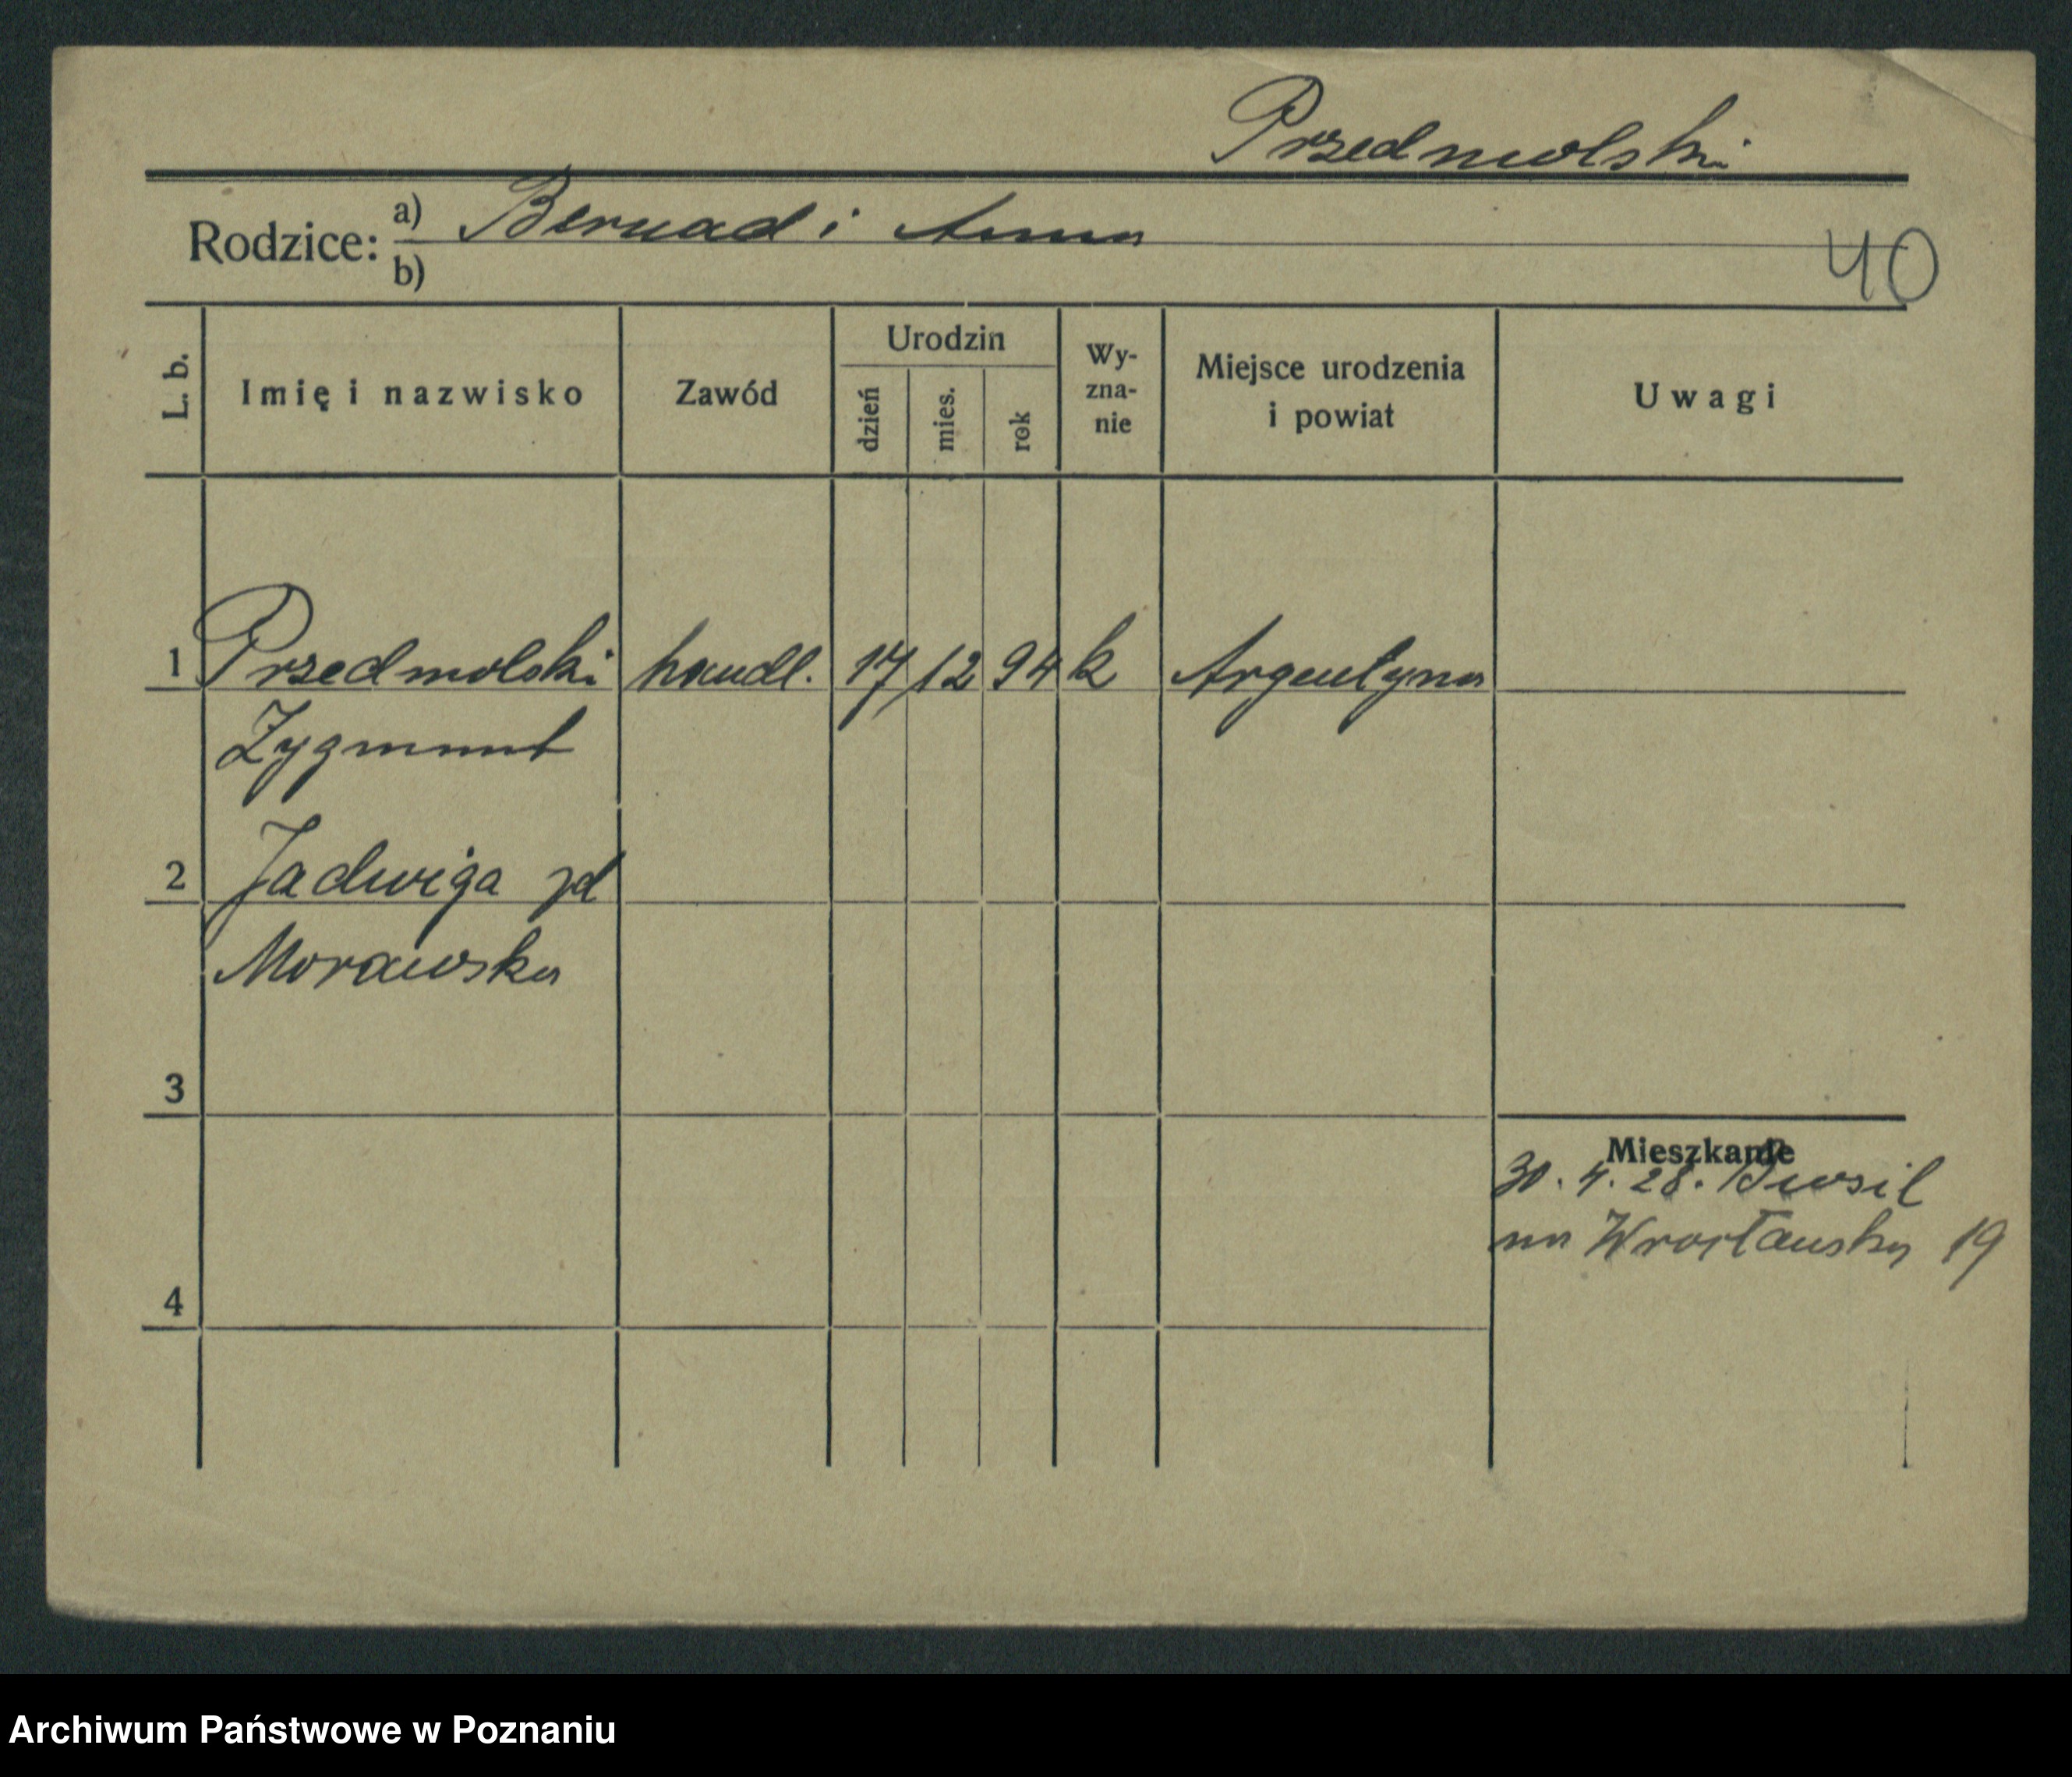 Przedmolski
Rodzice: a) Bernad i Anna
b)
40
L. b. Imię i nazwisko Zawód Urodzin dzień mies. rok Wy-zna-nie Miejsce urodzenia i powiat Uwagi
1 Przedmolski handl. 17 12 94 k Argentyna
Zygmunt
2 Jadwiga zd
Morawska
3
Mieszkanie
30. 4. 28.
na Wrocławską 19
4
Archiwum Państwowe w Poznaniu